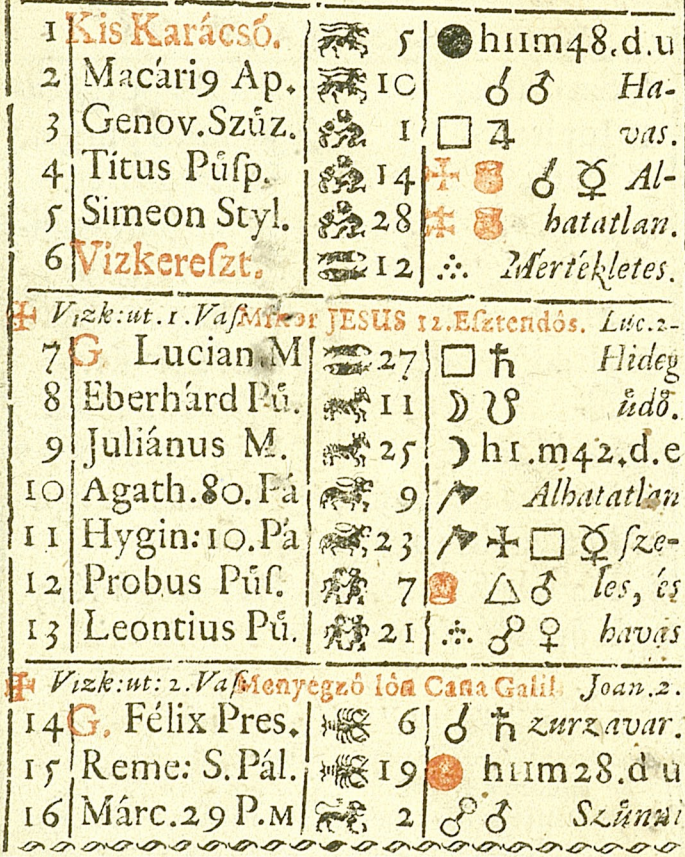 1 Kis Karácsó. 5 ● h11m48.d.u
2 Macári9 Ap. 10 ☌ ♂ Ha-
3 Genov.Szűz. 1 □ ♃ vas.
4 Titus Pűſp. 14 ☌ ☿ Al-
5 Simeon Styl. 28 hatatlan.
6 Vizkereſzt. 12 Mértékletes.
Vizk:ut.1.Vaſ Mikor JESUS 12.Eſztendős. Luc.2-
7 G. Lucian M 27 □ ♄ Hideg
8 Eberhárd Pű. 11 ☽ ☋ űdő.
9 Juliánus M. 25 ☽ h1.m42.d.e
10 Agath.80.Pá 9 Alhatatlan
11 Hygin:10.Pá 23 □ ☿ ſze-
12 Probus Pűſ. 7 △ ♂ les, és
13 Leontius Pű. 21 ☍ ♀ havas
Vizk:ut:2.Vaſ Menyegző lőn Cana Galil Joan.2.
14 G. Félix Pres. 6 ☌ ♄ zurzavar.
15 Reme: S.Pál. 19 h11m28.d u
16 Márc.29 P.M 2 ☍ ♂